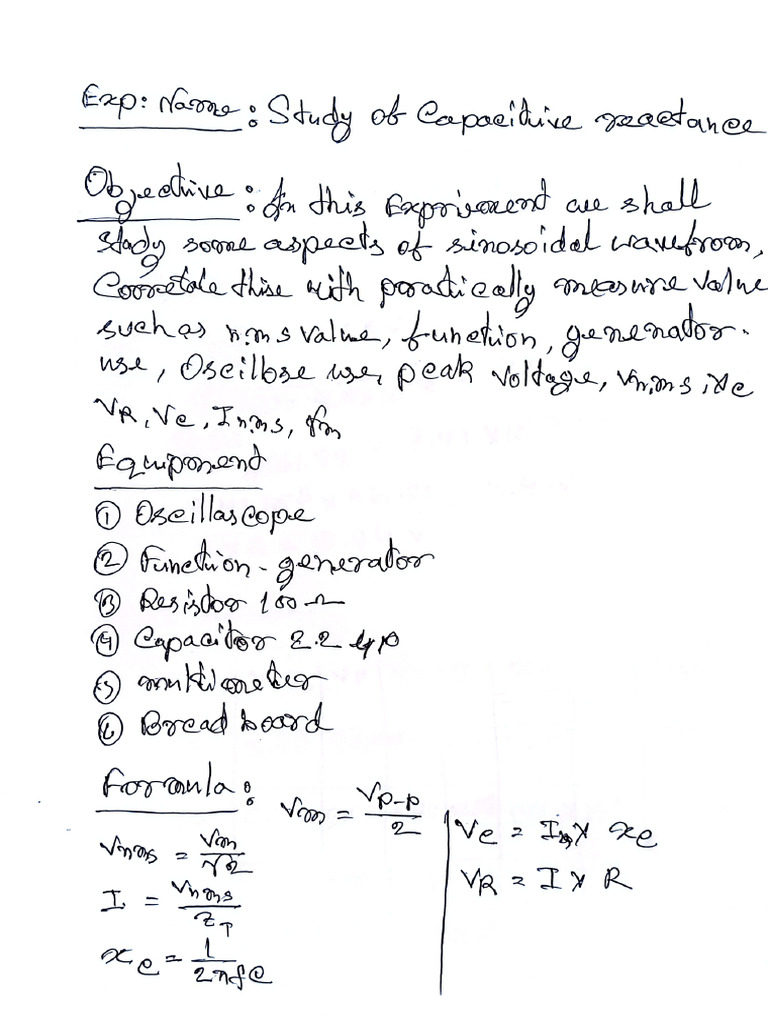 Exp: Name: Study of Capacitive reactance
Objective: In this Expriment we shall
study some aspects of sinosoidal wavefrom,
Corretate this with practically measure value
such as r.m.s value, function, generator.
use, Oscillose use, peak voltage, Vr.m.s, Xc
VR, Vc, Ir.ms, fm
Equipment
① Oscillascope
② Function - generator
③ Resistor 100 Ω
④ Capacitor 2.2 μF
⑤ multimeter
⑥ Bread board
Formula: Vm = Vp-p/2
Vrms = Vm/√2
I = Vrms/ZT
xc = 1/2πfc
Vc = I × xc
VR = I × R